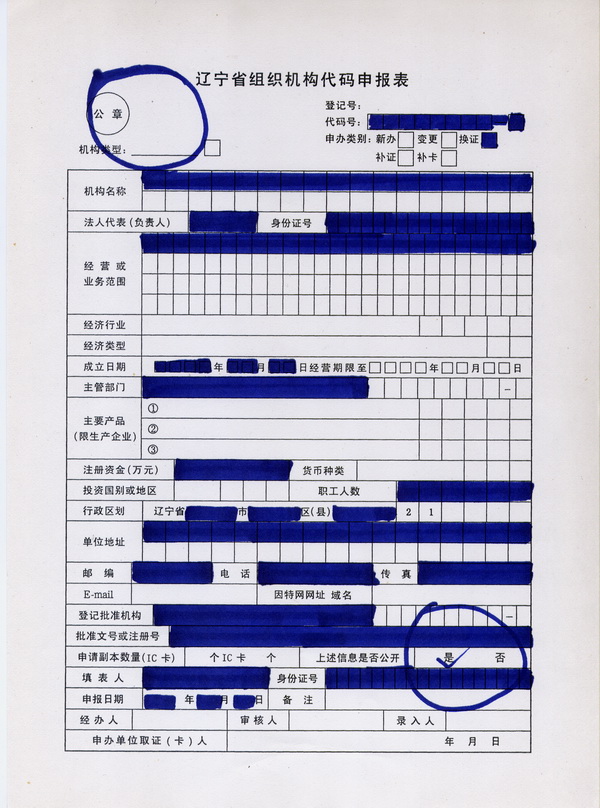 辽宁省组织机构代码申报表
公章
登记号:
代码号:
申办类别: 新办 变更 换证
补证 补卡
机构类型:
机构名称
法人代表(负责人) 身份证号
经营或
业务范围
经济行业
经济类型
成立日期 年 月 日经营期限至 年 月 日
主管部门 –
主要产品
(限生产企业)
①
②
③
注册资金(万元) 货币种类
投资国别或地区 职工人数
行政区划 辽宁省 市 区(县) 2 1
单位地址
邮编 电话 传真
E-mail 因特网网址 域名
登记批准机构 –
批准文号或注册号
申请副本数量(IC卡) 个IC卡 个 上述信息是否公开 是 否
填表人 身份证号
申报日期 年 月 日 备注
经办人 审核人 录入人
申办单位取证(卡)人 年 月 日